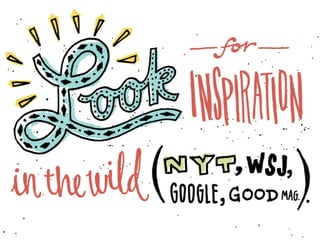 Look for
INSPIRATION
in the wild (NYT, WSJ,
GOOGLE, GOOD MAG.).